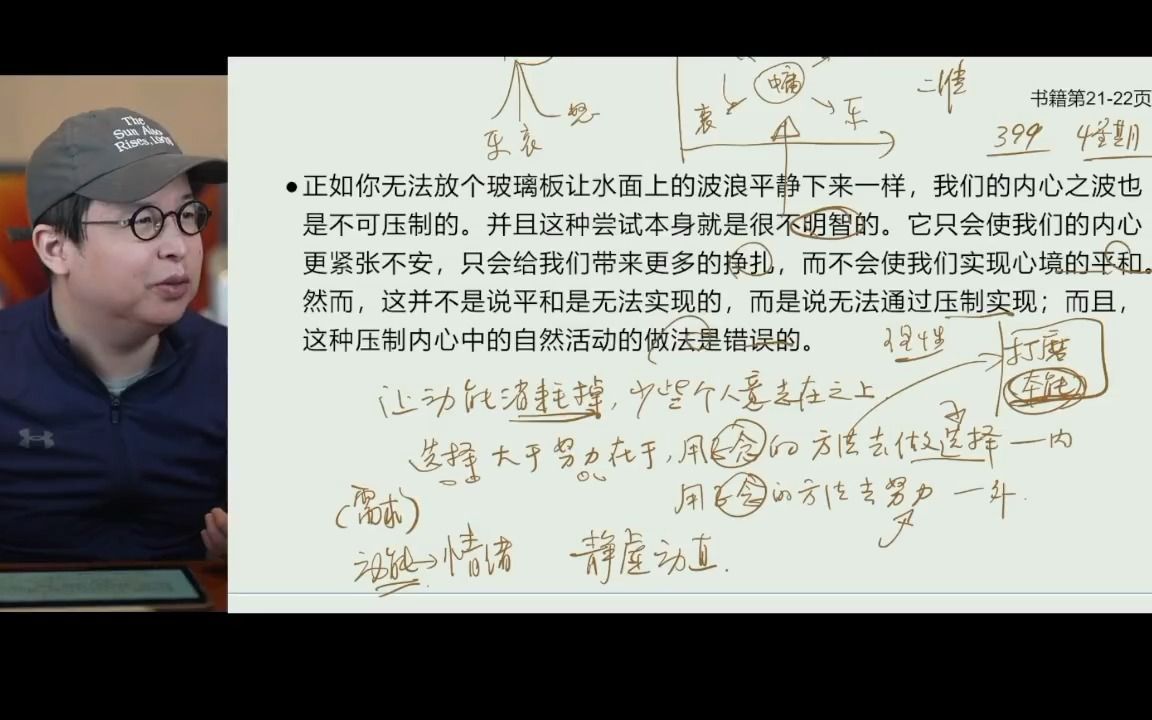 The
Sun Also
Rises,
怒
乐 哀
中庸
哀
乐
二维
书籍第21-22页
399 4星期
●正如你无法放个玻璃板让水面上的波浪平静下来一样，我们的内心之波也
是不可压制的。并且这种尝试本身就是很不明智的。它只会使我们的内心
更紧张不安，只会给我们带来更多的挣扎，而不会使我们实现心境的平和。
然而，这并不是说平和是无法实现的，而是说无法通过压制实现；而且，
这种压制内心中的自然活动的做法是错误的。
理性
打磨
本能
让动能消耗掉，少些个人意志在之上
选择大于努力在于，用正念的方法去做选择 — 内
用正念的方法去努力 — 外.
(需求)
动能→情绪 静虚动直.